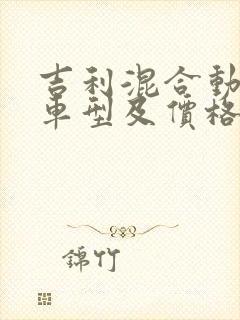 吉利混合動
車型及價格
錦竹